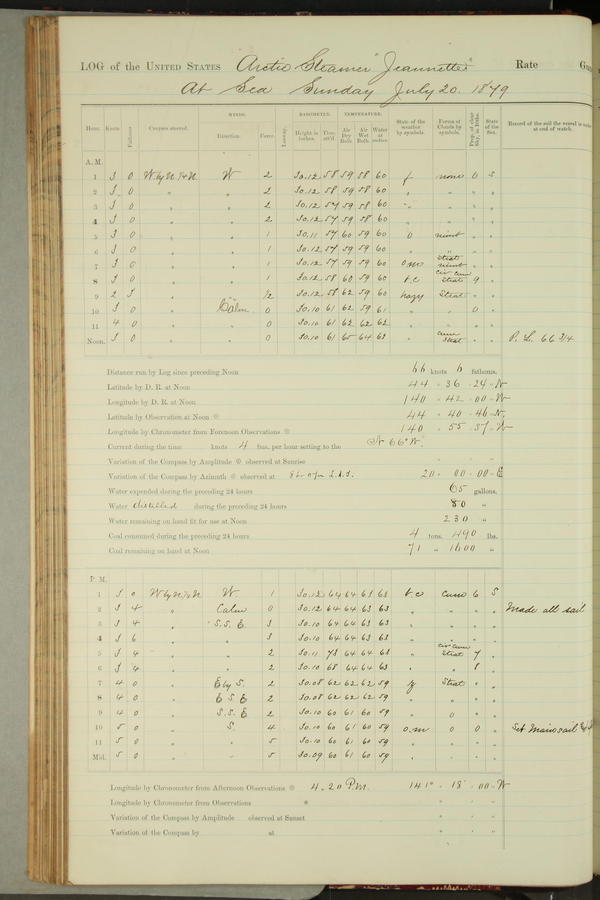 LOG of the UNITED STATES Arctic Steamer "Jeannette" Rate
At Sea Sunday July 20. 1879
Hour. Knots Fathoms Courses steered. WINDS. Direction. Force. Leeway. BAROMETER. Height in inches. Ther. att'd TEMPERATURE. Air Dry Bulb Air Wet Bulb Water at surface State of the weather by symbols. Forms of Clouds by symbols. Prop. of clear Sky, in 10ths. State of the Sea. Record of the sail the vessel is under at end of watch.
A. M.
1 3 0 W by N ¾ N W 2 30.12 58 59 58 60 f none 0 S
2 3 0 " " 2 30.12 58 59 58 60 " " " "
3 3 0 " " 2 30.12 57 59 58 60 " " " "
4 3 0 " " 2 30.12 57 59 58 60 " " " "
5 3 0 " " 1 30.11 57 60 59 60 O nimb " "
6 3 0 " " 1 30.12 57 59 59 60 " " " "
7 3 0 " " 1 30.12 57 59 59 60 O.m Strat nimb " "
8 3 0 " " 1 30.12 58 60 59 60 b.c cir cum Strat 9 "
9 2 3 " " ½ 30.12 58 62 59 60 hazy Strat " "
10 3 0 " Calm 0 30.10 61 62 59 61 " " 0 "
11 4 0 " " 0 30.10 61 62 62 62 " " " "
Noon. 3 0 " " 0 30.10 61 65 64 63 " cum Strat " " P. L. 66 3/4
Distance run by Log since preceding Noon 66 knots 6 fathoms.
Latitude by D. R. at Noon 44 - 36 - 24 - N
Longitude by D. R. at Noon 140 - 42 - 00 - W
Latitude by Observation at Noon 44 - 40 - 46 - N.
Longitude by Chronometer from Forenoon Observations 140 - 55 - 57 - W
Current during the time knots 4 fms. per hour setting to the N 66° W.
Variation of the Compass by Amplitude observed at Sunrise
Variation of the Compass by Azimuth observed at 20 - 00 - 00 - E
Water expended during the preceding 24 hours 65 gallons.
Water distilled during the preceding 24 hours 80 "
Water remaining on hand fit for use at Noon 230 "
Coal consumed during the preceding 24 hours 4 tons. 490 lbs.
Coal remaining on hand at Noon 71 " 1600 "
P. M.
1 3 0 W by N ¾ N W 1 30.12 64 64 63 63 b c Cum 6 S
2 3 4 " Calm 0 30.12 64 64 63 63 " " " " Made all sail
3 3 4 " S. S. E 3 30.10 64 64 63 63 " " " "
4 3 6 " " 3 30.10 64 64 63 63 " " " "
5 3 4 " " 2 30.11 73 64 64 63 " cir cum Strat 7 "
6 3 4 " " 2 30.10 68 64 64 63 " " 8 "
7 4 0 " E by S. 2 30.08 62 62 62 59 f Strat " "
8 4 0 " E S E 2 30.08 62 62 62 59 " " " "
9 4 0 " S. S. E 2 30.10 60 61 60 59 " 0 " "
10 5 0 " S. 4 30.10 60 61 60 59 O.m 0 0 " Set Mainsail
11 5 0 " " 5 30.10 60 61 60 59 " " " "
Mid. 5 0 " " 5 30.09 60 61 60 59 " " " "
Longitude by Chronometer from Afternoon Observations 4.20 P.M. 141° - 18' - 00 - W
Longitude by Chronometer from Observations
Variation of the Compass by Amplitude observed at Sunset
Variation of the Compass by at